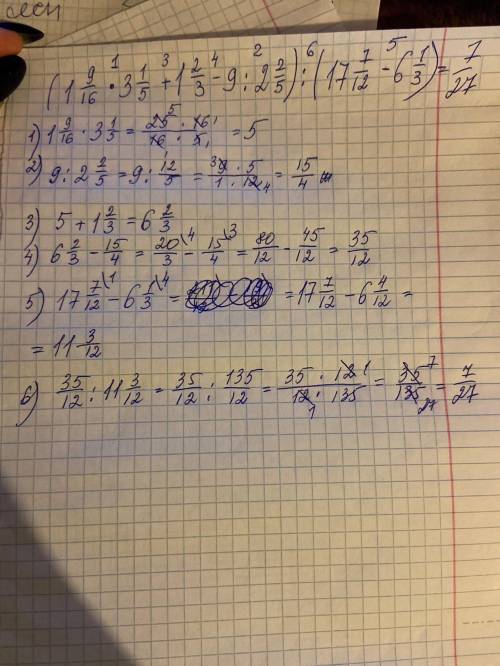 (1 9/16 · 3 1/5 + 1 2/3 - 9 : 2 2/5) : (17 7/12 - 6 1/3) = 7/27
1) 1 9/16 · 3 1/5 = 25 · 16 / 16 · 5 = 5
2) 9 : 2 2/5 = 9 : 12/5 = 9 · 5 / 1 · 12 = 15/4
3) 5 + 1 2/3 = 6 2/3
4) 6 2/3 - 15/4 = 20/3 - 15/4 = 80/12 - 45/12 = 35/12
5) 17 7/12 - 6 1/3 = = 17 7/12 - 6 4/12 =
= 11 3/12
6) 35/12 : 11 3/12 = 35/12 : 135/12 = 35 · 12 / 12 · 135 = 35/135 = 7/27